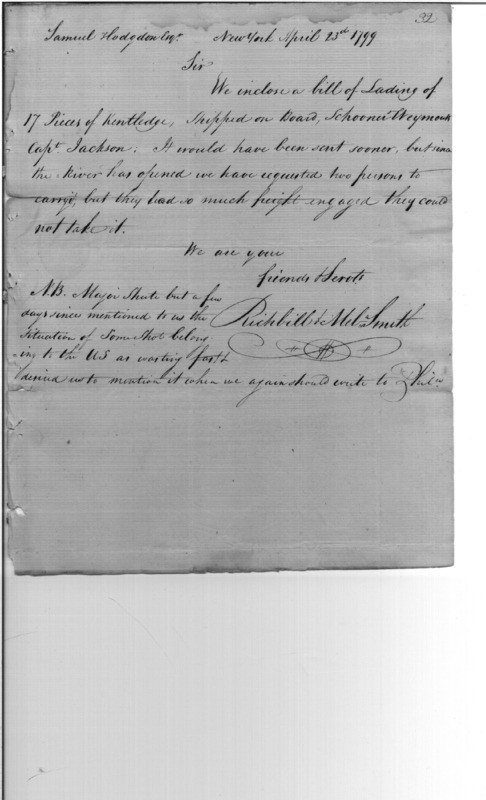 32
Samuel Hodgdon Esqr. New York April 23rd 1799
Sir
We inclose a bill of Lading of
17 Pieces of Kentledge, Shipped on Board, Schooner Weymouth
Capt. Jackson: It would have been sent sooner, but since
the River has opened we have requested two persons to
carry, but they had so much freight engaged they could
not take it.
We are your
friends & Servts
Richbill & Mel. Smith
N.B. Major Shute but a few
days since mentioned to us the
Situation of Some Shot belong
-ing to the US as wasting fast &
desired us to mention it when we again should write to Phila